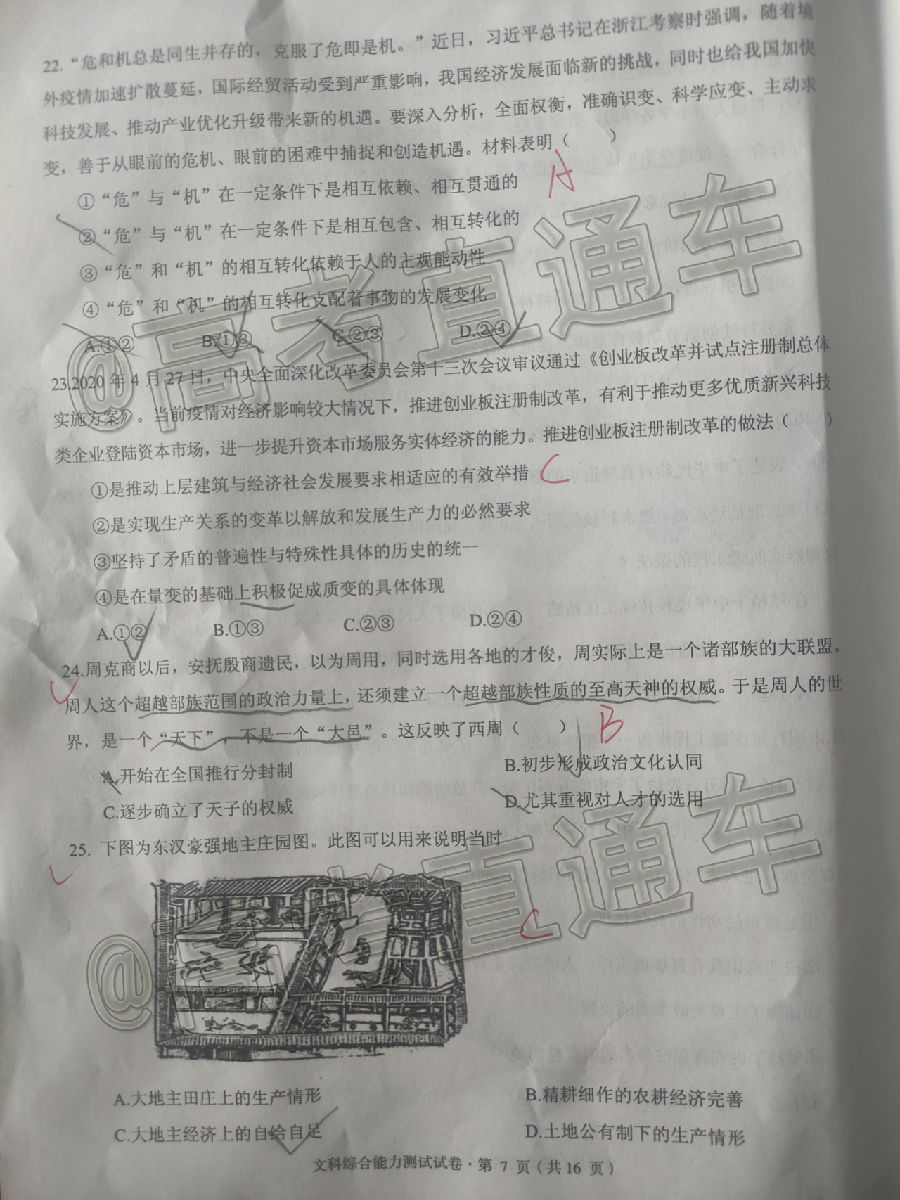 22.“危和机总是同生并存的，克服了危即是机。”近日，习近平总书记在浙江考察时强调，随着境
外疫情加速扩散蔓延，国际经贸活动受到严重影响，我国经济发展面临新的挑战，同时也给我国加快
科技发展、推动产业优化升级带来新的机遇。要深入分析，全面权衡，准确识变、科学应变、主动求
变，善于从眼前的危机、眼前的困难中捕捉和创造机遇。材料表明（　　）
A
①“危”与“机”在一定条件下是相互依赖、相互贯通的
②“危”与“机”在一定条件下是相互包含、相互转化的
③“危”和“机”的相互转化依赖于人的主观能动性
④“危”和“机”的相互转化支配着事物的发展变化
A.①② B.①③ C.②③ D.②④
23.2020 年 4 月 27 日，中央全面深化改革委员会第十三次会议审议通过《创业板改革并试点注册制总体
实施方案》。当前疫情对经济影响较大情况下，推进创业板注册制改革，有利于推动更多优质新兴科技
类企业登陆资本市场，进一步提升资本市场服务实体经济的能力。推进创业板注册制改革的做法（　　）
①是推动上层建筑与经济社会发展要求相适应的有效举措 C
②是实现生产关系的变革以解放和发展生产力的必然要求
③坚持了矛盾的普遍性与特殊性具体的历史的统一
④是在量变的基础上积极促成质变的具体体现
A.①② B.①③ C.②③ D.②④
24.周克商以后，安抚殷商遗民，以为周用，同时选用各地的才俊，周实际上是一个诸部族的大联盟。
周人这个超越部族范围的政治力量上，还须建立一个超越部族性质的至高天神的权威。于是周人的世
界，是一个“天下”，不是一个“大邑”。这反映了西周（　　） B
A.开始在全国推行分封制 B.初步形成政治文化认同
C.逐步确立了天子的权威 D.尤其重视对人才的选用
25. 下图为东汉豪强地主庄园图。此图可以用来说明当时
C
A.大地主田庄上的生产情形 B.精耕细作的农耕经济完善
C.大地主经济上的自给自足 D.土地公有制下的生产情形
文科综合能力测试试卷·第 7 页（共16 页）
@高考直通车
@高考直通车